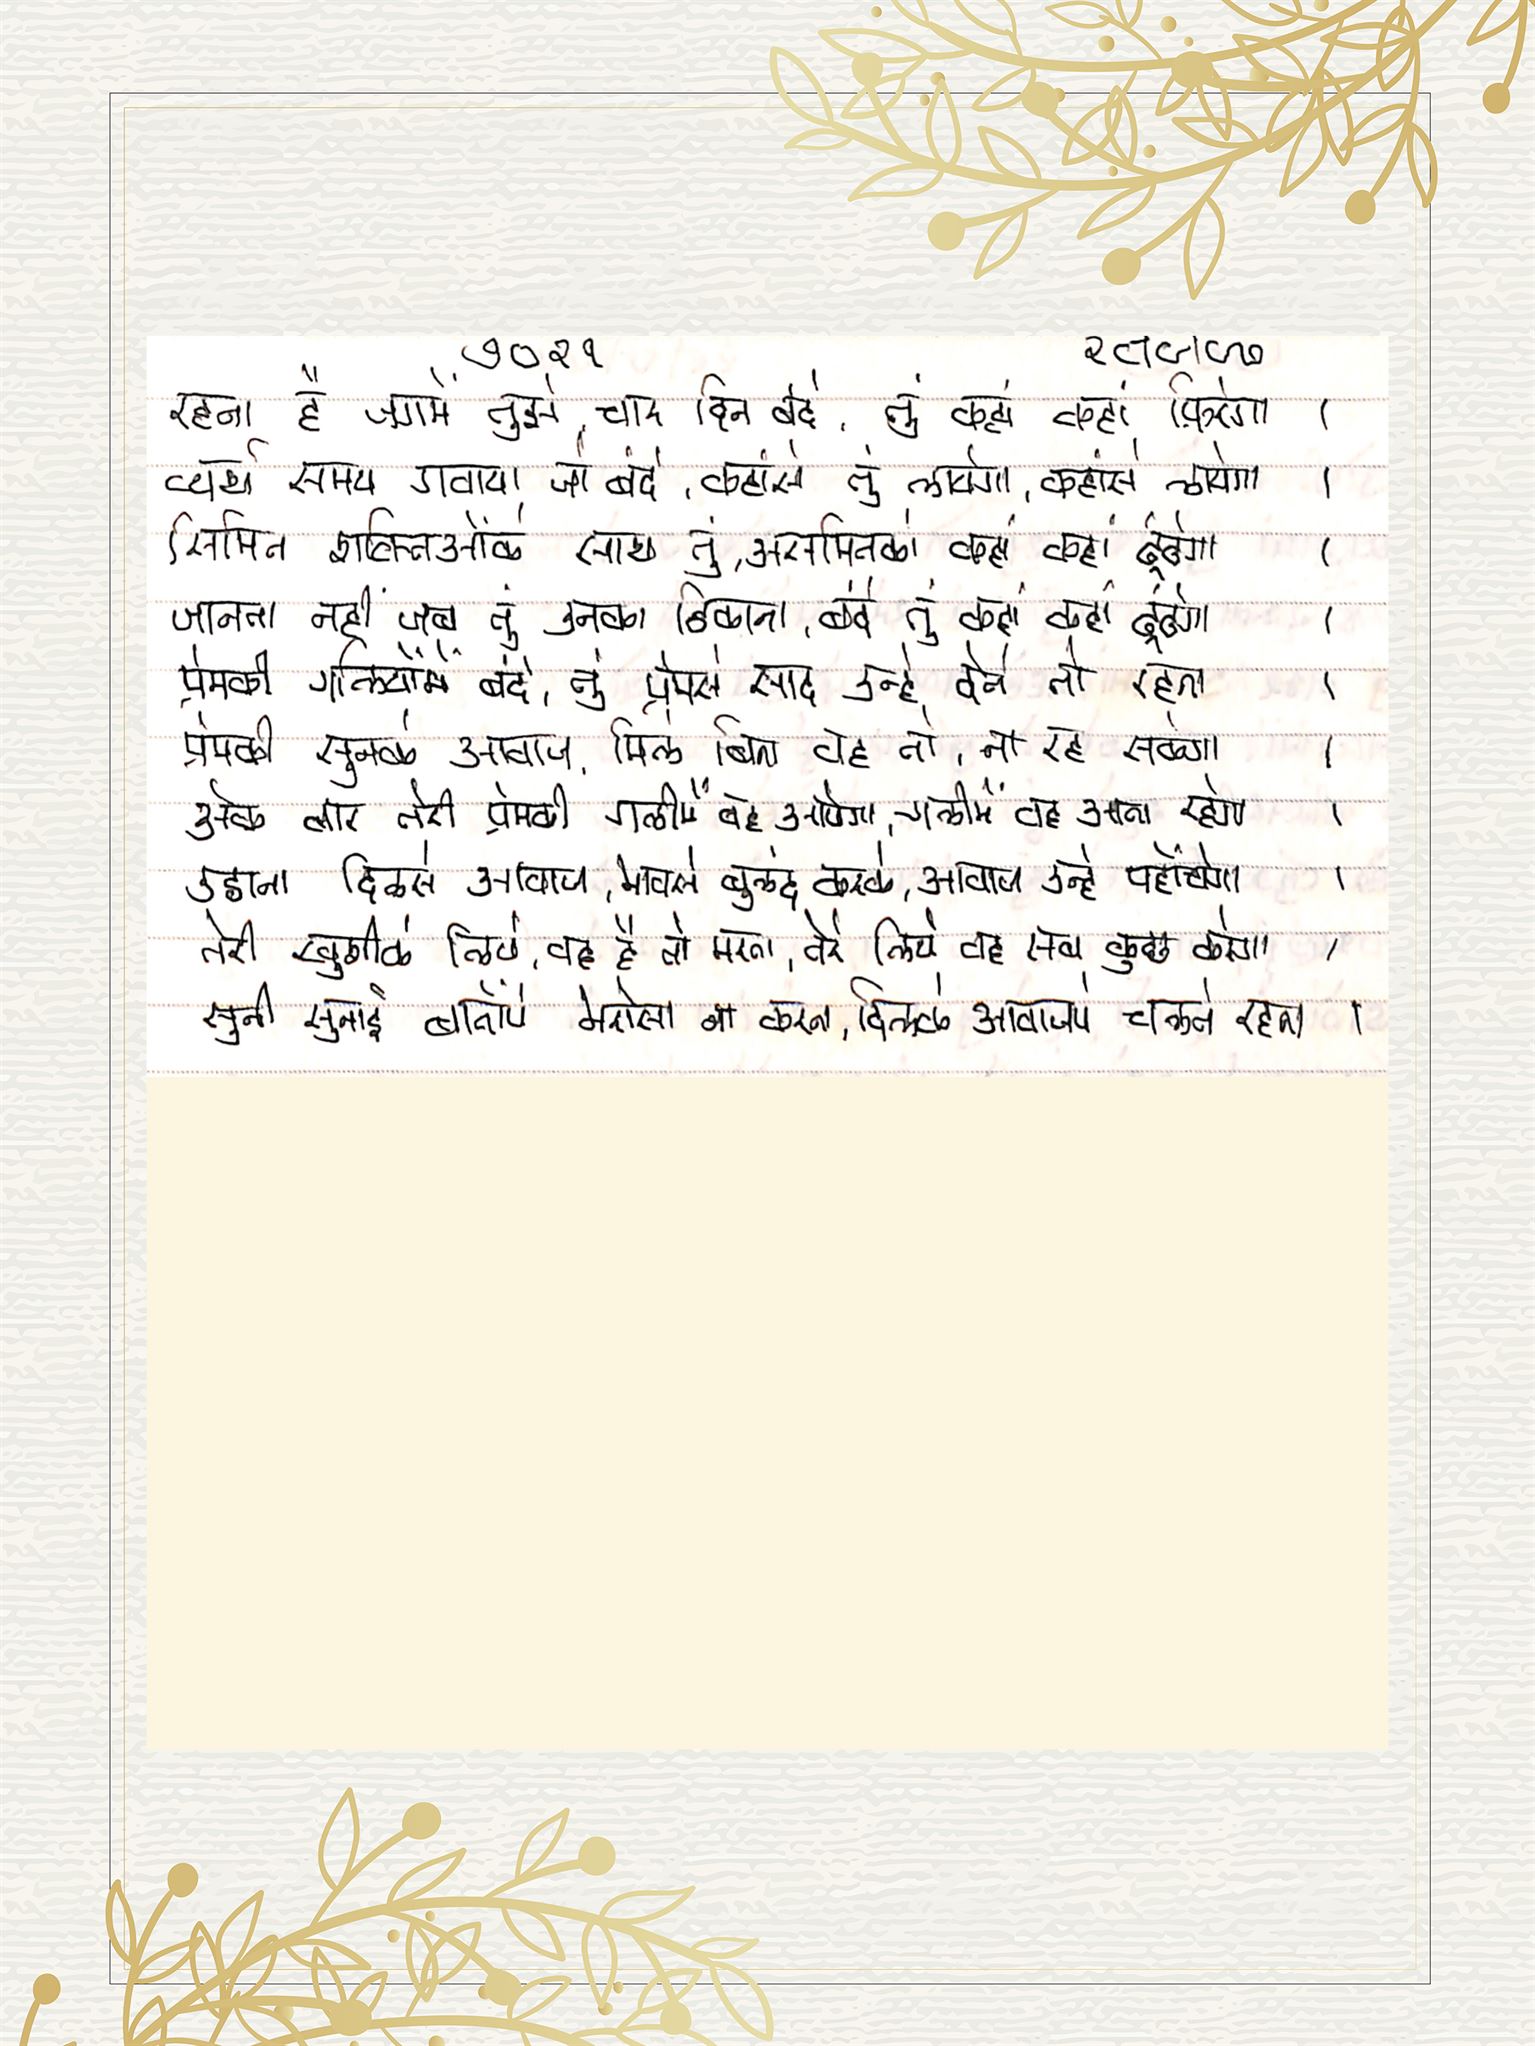 ७०२१
रहना है जगमें तुझे, चार दिन बंदे, तुं कहां कहां फिरेगा ।
व्यर्थ समय गवाया जो बंदे, कहांसे तुं लायेगा, कहांसे लायेगा ।
सिमित शक्तिओंके साथ तुं, असमितको कहां कहां ढूंढेगा ।
जानता नहीं जब तुं उनका ठिकाना, बंदे तुं कहां कहां ढूंढेगा ।
प्रेमकी गलियोंमें बंदे, तुं प्रेमसे साद उन्हे देते तो रहना ।
प्रेमकी सुनके आवाज, मिले बिना वह तो, ना रह सकेगा ।
अेक बार तेरी प्रेमकी गलीमें वह आयेगा, गलीमें वह आता रहेगा ।
उठाना दिलसे आवाज, भावसे बुलंद करके, आवाज उन्हे पहोंचेगा ।
तेरी खुशीके लिये, वह है तो मरता, तेरे लिये वह सब कुछ करेगा ।
सुनी सुनाई बातोंपे भरोसा ना करना, दिलके आवाजपे चलते रहना ।